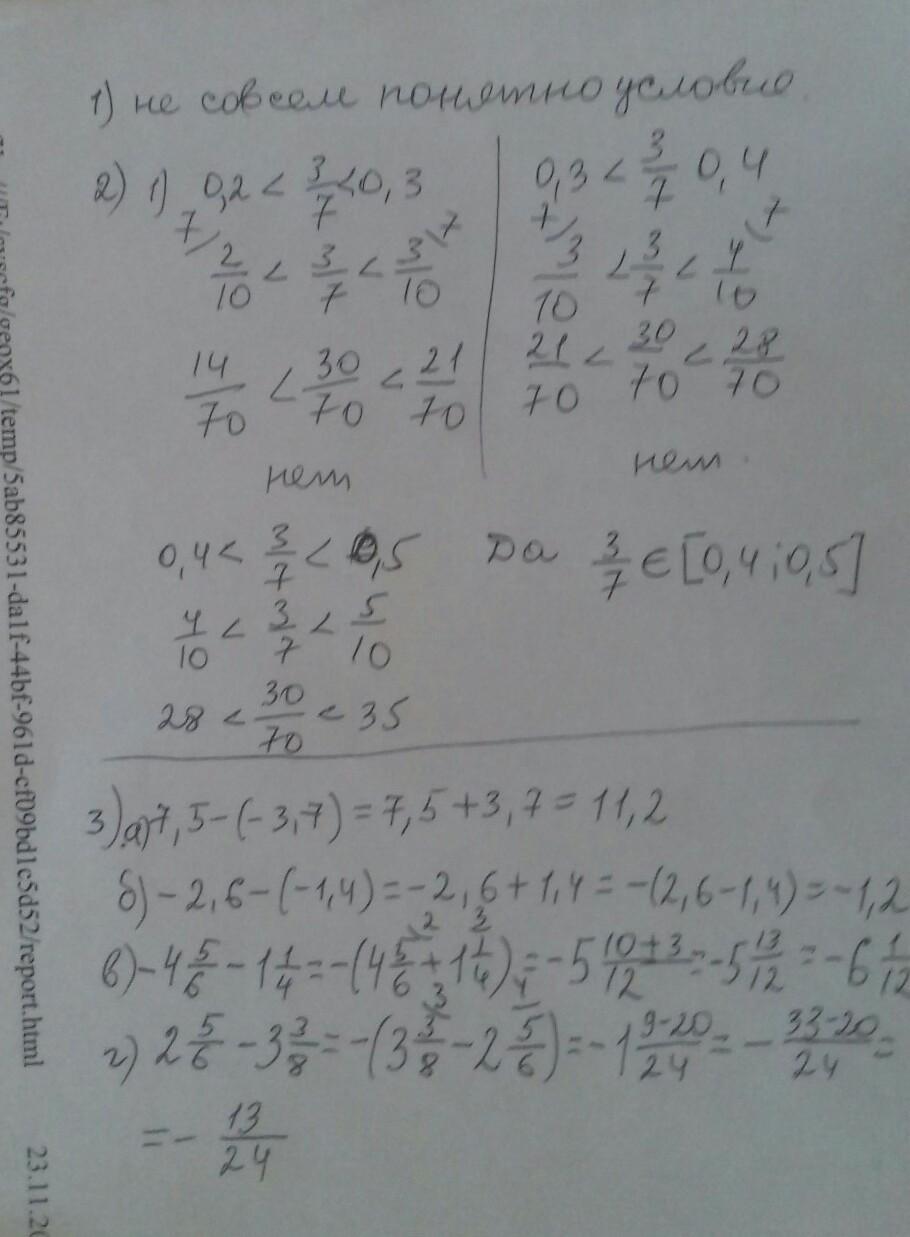 1) не совсем понятно условие.
2) 1) 0,2 < 3/7 < 0,3
7) 7
2/10 < 3/7 < 3/10
14/70 < 30/70 < 21/70
нет
0,3 < 3/7 0,4
7) 7
3/10 < 3/7 < 4/10
21/70 < 30/70 < 28/70
нет.
0,4 < 3/7 < 0,5 Да 3/7 ∈ [0,4;0,5]
4/10 < 3/7 < 5/10
28 < 30/70 < 35
3) а) 7,5-(-3,7) = 7,5+3,7 = 11,2
б) -2,6-(-1,4) = -2,6+1,4 = -(2,6-1,4) = -1,2
в) -4 5/6 - 1 1/4 = -(4 5/6 + 1 1/4) = -5 10+3/12 = -5 13/12 = -6 1/12
г) 2 5/6 - 3 3/8 = -(3 3/8 - 2 5/6) = -1 9-20/24 = - 33-20/24 =
= - 13/24
/temp/5ab85531-da1f-44bf-961d-cf09bd1c5d52/report.html
23.11.20